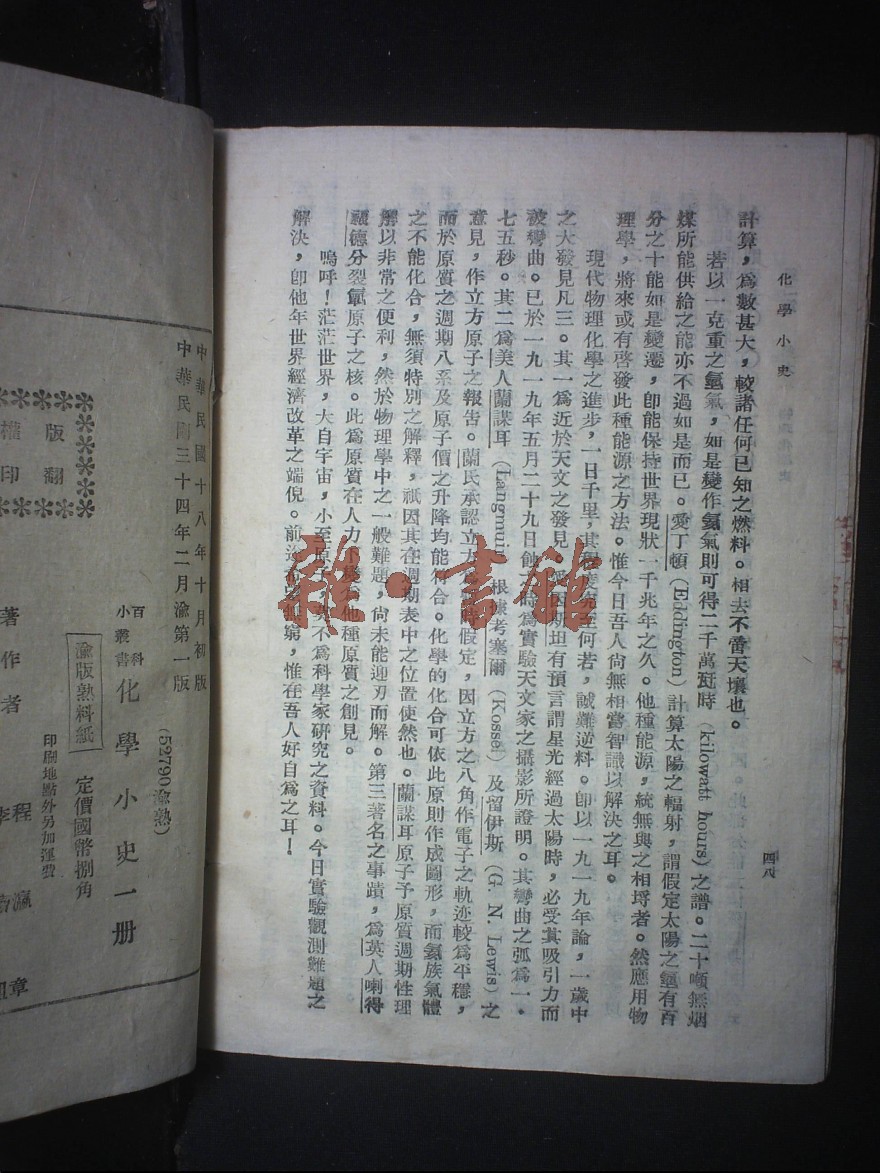 化學小史
四八
計算，爲數甚大，較諸任何已知之燃料。相去不啻天壤也。
若以一克重之氫氣，如是變作氦氣則可得二千萬瓩時（kilowatt hours）之譜。二十噸無烟
煤所能供給之能亦不過如是而已。愛丁頓（Eddington）計算太陽之輻射，謂假定太陽之氫有百
分之十能如是變遷，卽能保持世界現狀一千兆年之久。他種能源，統無與之相埒者。然應用物
理學，將來或有啓發此種能源之方法。惟今日吾人尙無相當智識以解決之耳。
現代物理化學之進步，一日千里，其究至何若，誠難逆料。卽以一九一九年論，一歲中
之大發見凡三。其一爲近於天文之發見。因斯坦有預言謂星光經過太陽時，必受其吸引力而
被彎曲。已於一九一九年五月二十九日蝕時爲實驗天文家之攝影所證明。其彎曲之弧爲一·
七五秒。其二爲美人蘭謀耳（Langmuir）根據考塞爾（Kossel）及留伊斯（G. N. Lewis）之
意見，作立方原子之報告。蘭民承認立方假定，因立方之八角作電子之軌迹較爲平穩，
而於原質之週期八系及原子價之升降均能符合。化學的化合可依此原則作成圖形，而氦族氣體
之不能化合，無須特別之解釋，祇因其在週期表中之位置使然也。蘭謀耳原子予原質週期性理
解以非常之便利，然於物理學中之一般難題，尙未能迎刃而解。第三著名之事蹟，爲英人喇得
福德分裂氮原子之核。此爲原質在人力下他種原質之創見。
嗚呼！茫茫世界，大自宇宙，小至原子，不爲科學家硏究之資料。今日實驗觀測難題之
解決，卽他年世界經濟改革之端倪。前途窮，惟在吾人好自爲之耳！
中華民國十八年十月初版
中華民國三十四年二月渝第一版
(52790渝熟)
百科
小叢書
化學小史一册
渝版熟料紙
定價國幣捌角
印刷地點外另加運費
版權
翻印
著作者
程瀛章
李
雜·書館